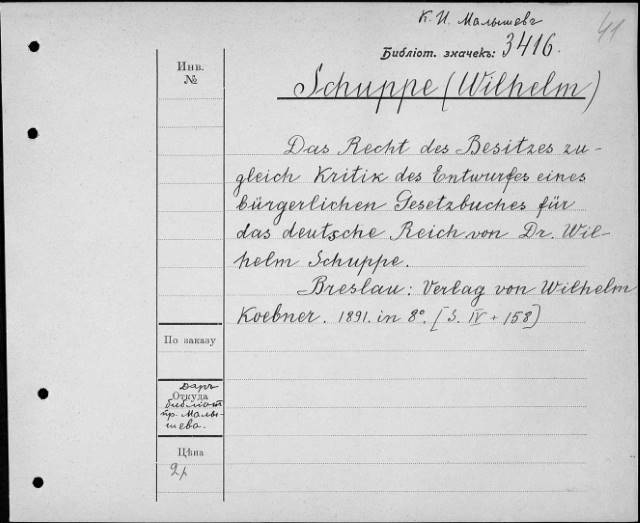 К. И. Малышевъ
41
Библіот. значекъ: 3416.
Инв.
№
Schuppe (Wilhelm)
Das Recht des Besitzes zu-
gleich Kritik des Entwurfes eines
bürgerlichen Gesetzbuches für
das deutsche Reich von Dr. Wil-
helm Schuppe.
Breslau: Verlag von Wilhelm
Koebner. 1891. in 8º. [S. IV + 158]
По заказу
Откуда
Даръ
библіот
пр. Малы-
шева.
Цѣна
2р